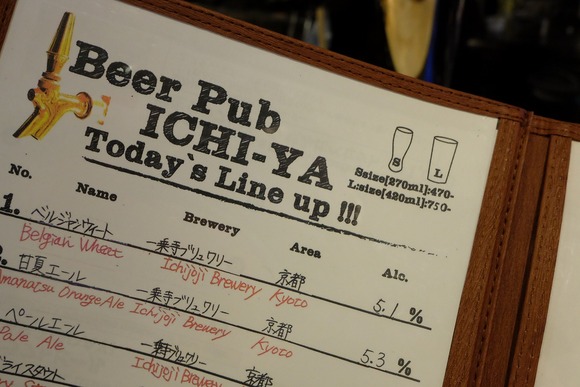 Beer Pub
ICHI-YA
Today's Line up !!!
S L
Ssize[270ml]:470-
L:size[420ml]:750-
No. Name Brewery Area Alc.
1. ベルジャンウィート 一乗寺ブリュワリー 京都 5.1 %
Belgian Wheat Ichijoji Brewery Kyoto
甘夏エール 一乗寺ブリュワリー 京都 5.3 %
Amanatsu Orange Ale Ichijoji Brewery Kyoto
ペールエール 一乗寺ブリュワリー 京都
Pale Ale Ichijoji Brewery
ドライスタウト